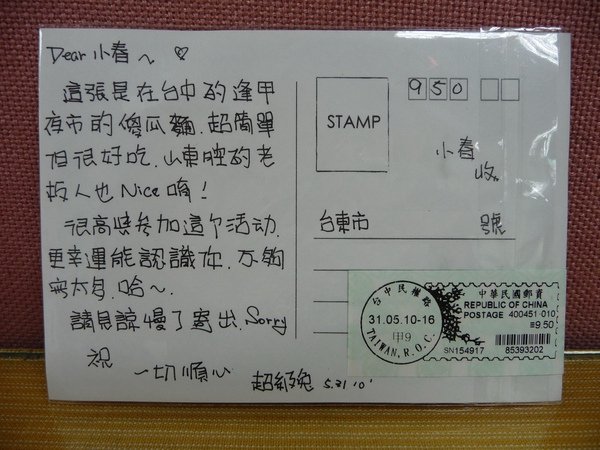 Dear 小春~ ♡
這張是在台中的逢甲
夜市的傻瓜麵.超簡單
但很好吃.山東腔的老
板人也Nice唷!
很高興參加這个活动.
更幸運能認識你.不夠
字太多.哈~
請見諒慢了寄出.Sorry
祝
一切順心
超級兔 5.31 '10'
STAMP
950
小春
收
台東市 號
台中民權路
31.05.10-16
甲9
TAIWAN, R.O.C.
中華民國郵資
REPUBLIC OF CHINA
POSTAGE 400451 010
9.50
SN154917 85393202